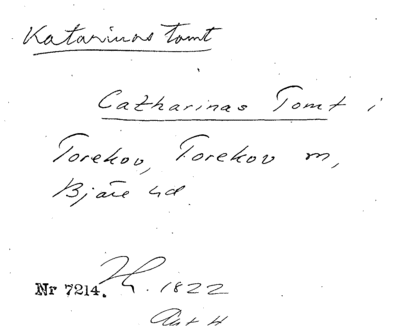 Katarinas Tomt
Catharinas Tomt i
Torekov, Torekov m,
Bjäre hd
Nr 7214. 1822
H